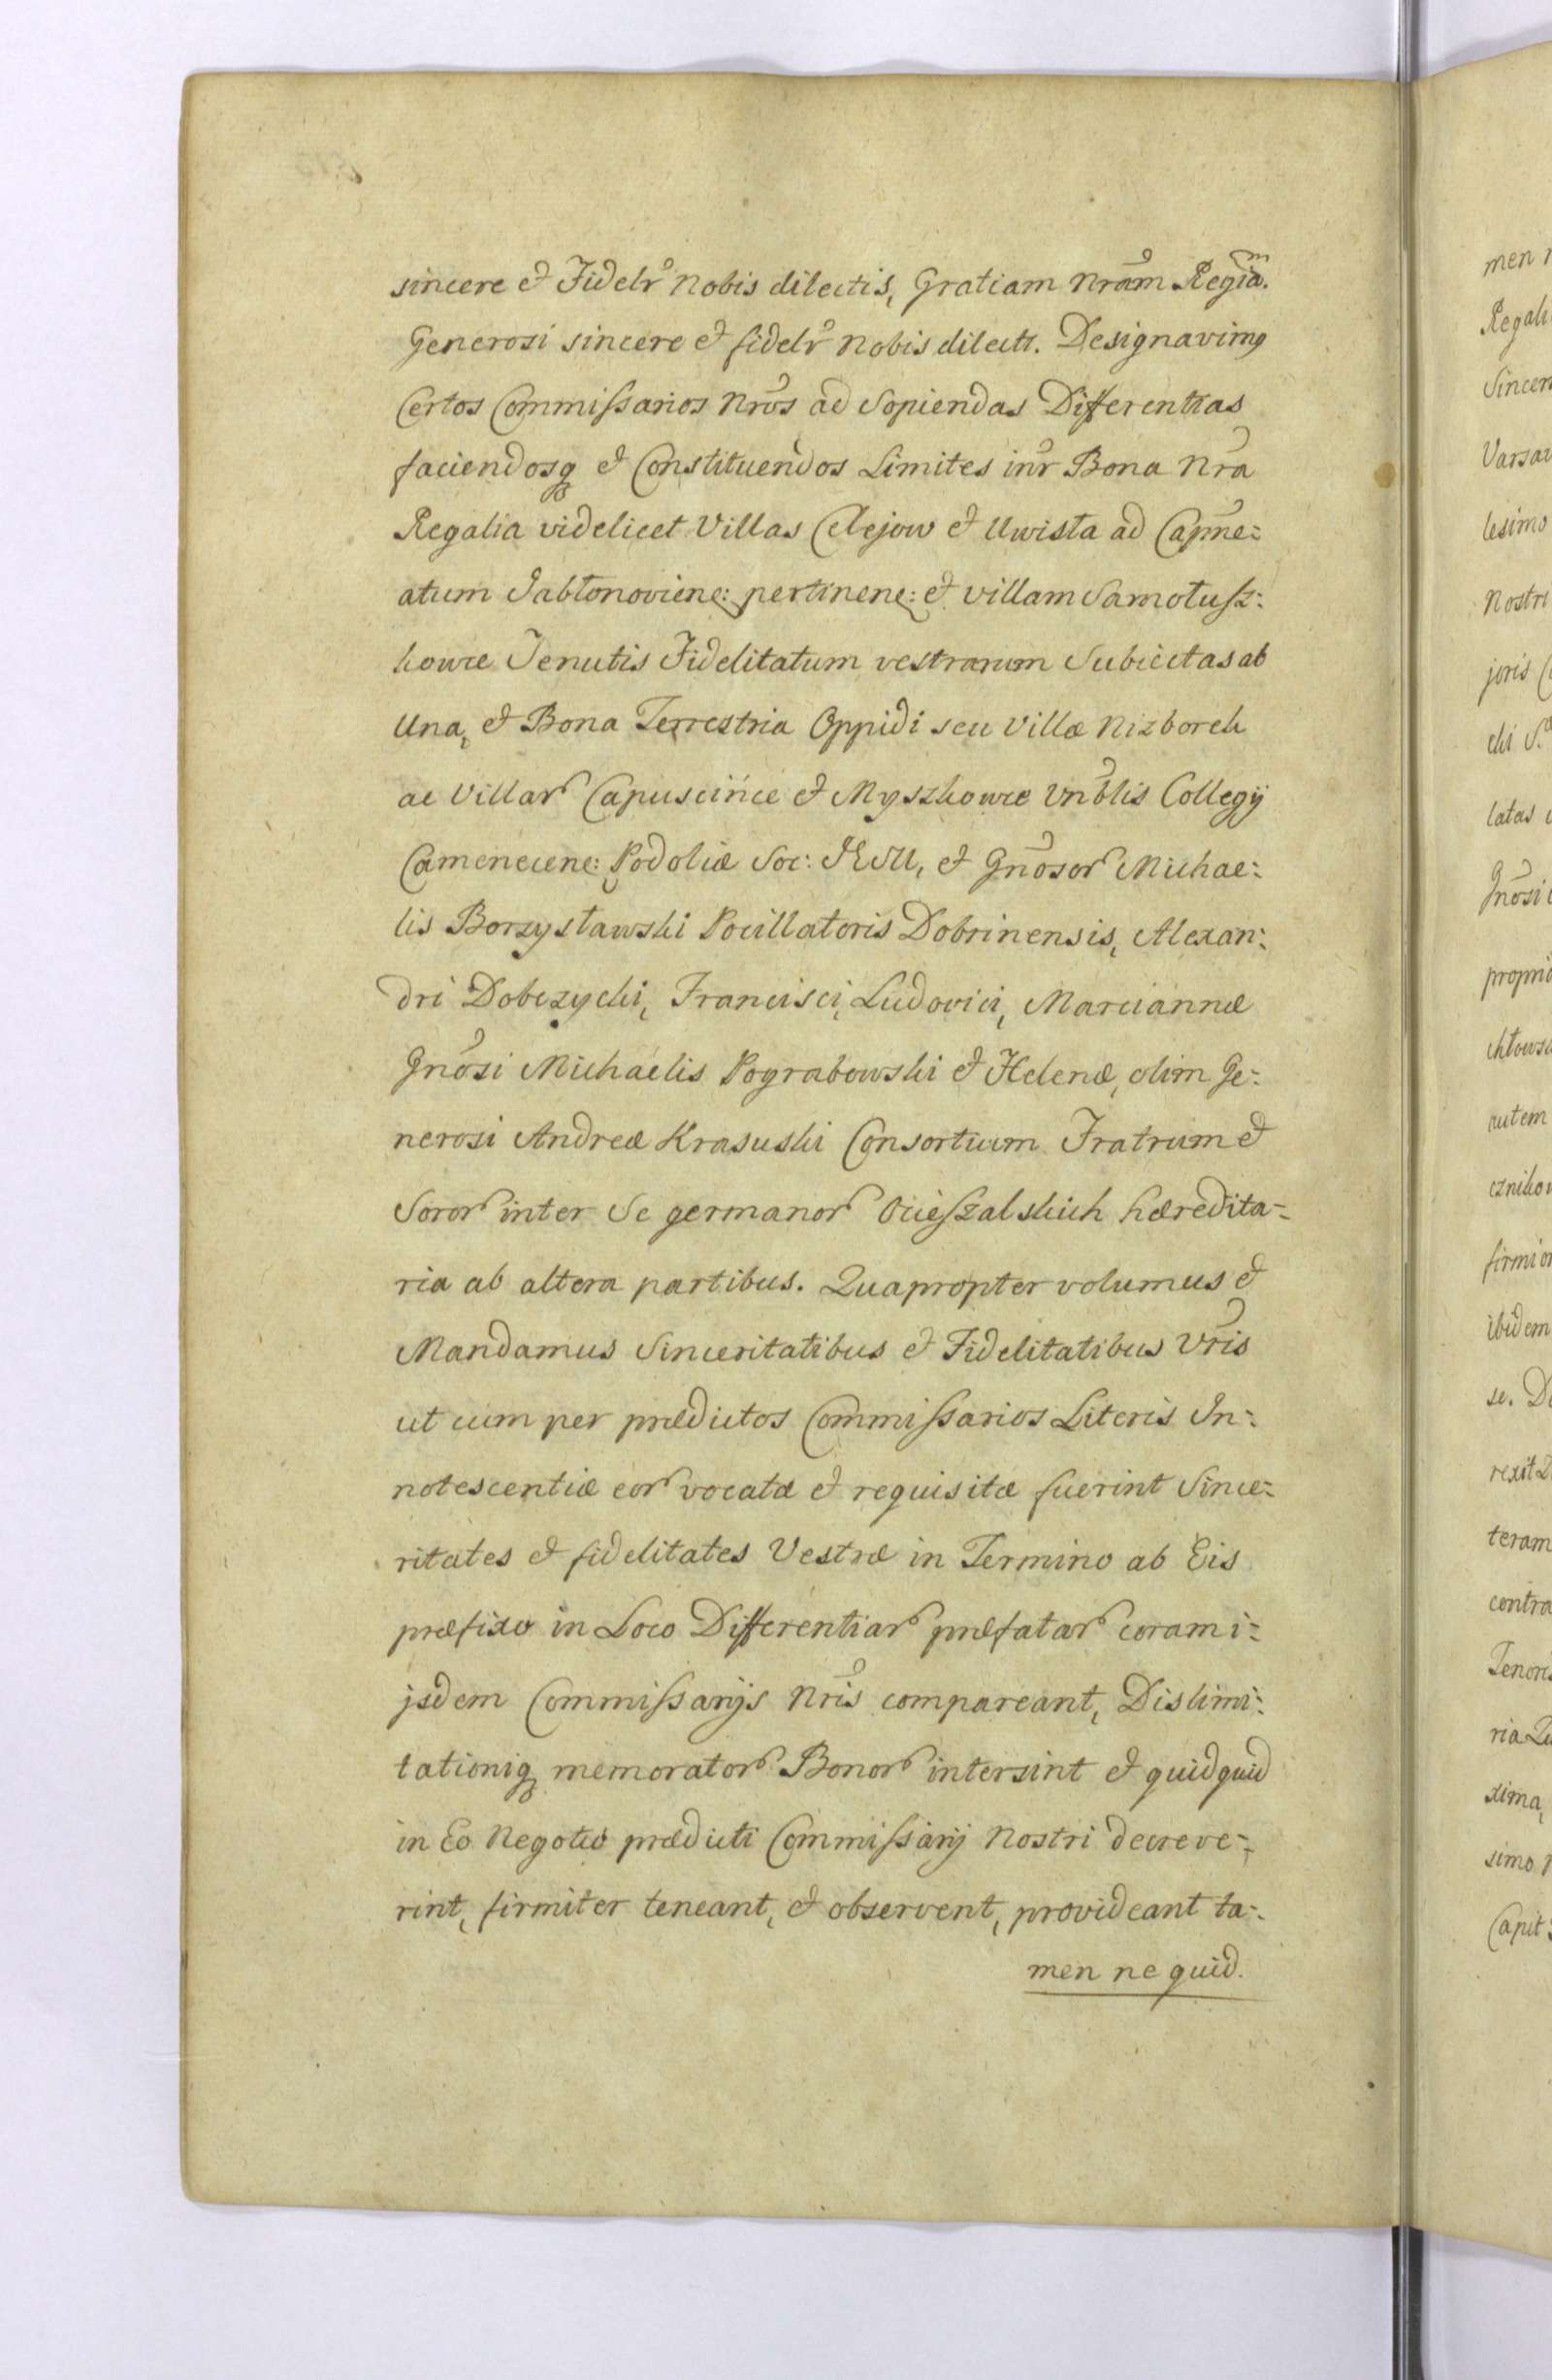 sincere et Fidelr Nobis dilectis, Gratiam Nram Regiam.
Generosi sincere et fidelr Nobis dilecti. Designavimq
Certos Commissarios Nros ad Sopiendas Differentias
faciendosq et Constituendos Limites inr Bona Nra
Regalia videlicet Villas Celejow et Uwista ad Capne=
atum Jabłonoviene: pertinene: et villam Samołusz=
kowce Tenutis Fidelitatum vestrarum Subiectas ab
Una, et Bona Terrestria Oppidi seu Villæ Nizborek
ac Villar Capuscińce et Myszkowce Vnblis Collegÿ
Camenecene: Podoliæ Soc: JESU, et Gnosor Michae=
lis Borzysławski Pocillatoris Dobrinensis, Alexan=
dri Dobczycki, Francisci, Ludovici, Marciannæ
Gnosi Michaelis Pograbowski et Helenæ, olim Ge=
nerosi Andreæ Krasuski Consortium Fratrum et
Soror inter Se germanor Ocieszalskich hæredita=
ria ab altera partibus. Quapropter volumus et
Mandamus Sinceritatibus et Fidelitatibus Vris
ut cum per prædictos Commissarios Literis In=
notescentiæ eor vocatæ et requisitæ fuerint Since=
ritates et fidelitates Vestræ in Termino ab Eis
præfixo in Loco Differentiar præfatar coram i=
jsdem Commissarÿs Nris compareant, Dislimi=
tationiq memorator Bonor intersint et quidquid
in Eo Negotio prædicti Commissarÿ Nostri decreve=
rint, firmiter teneant, et observent, provideant ta=
men ne quid.